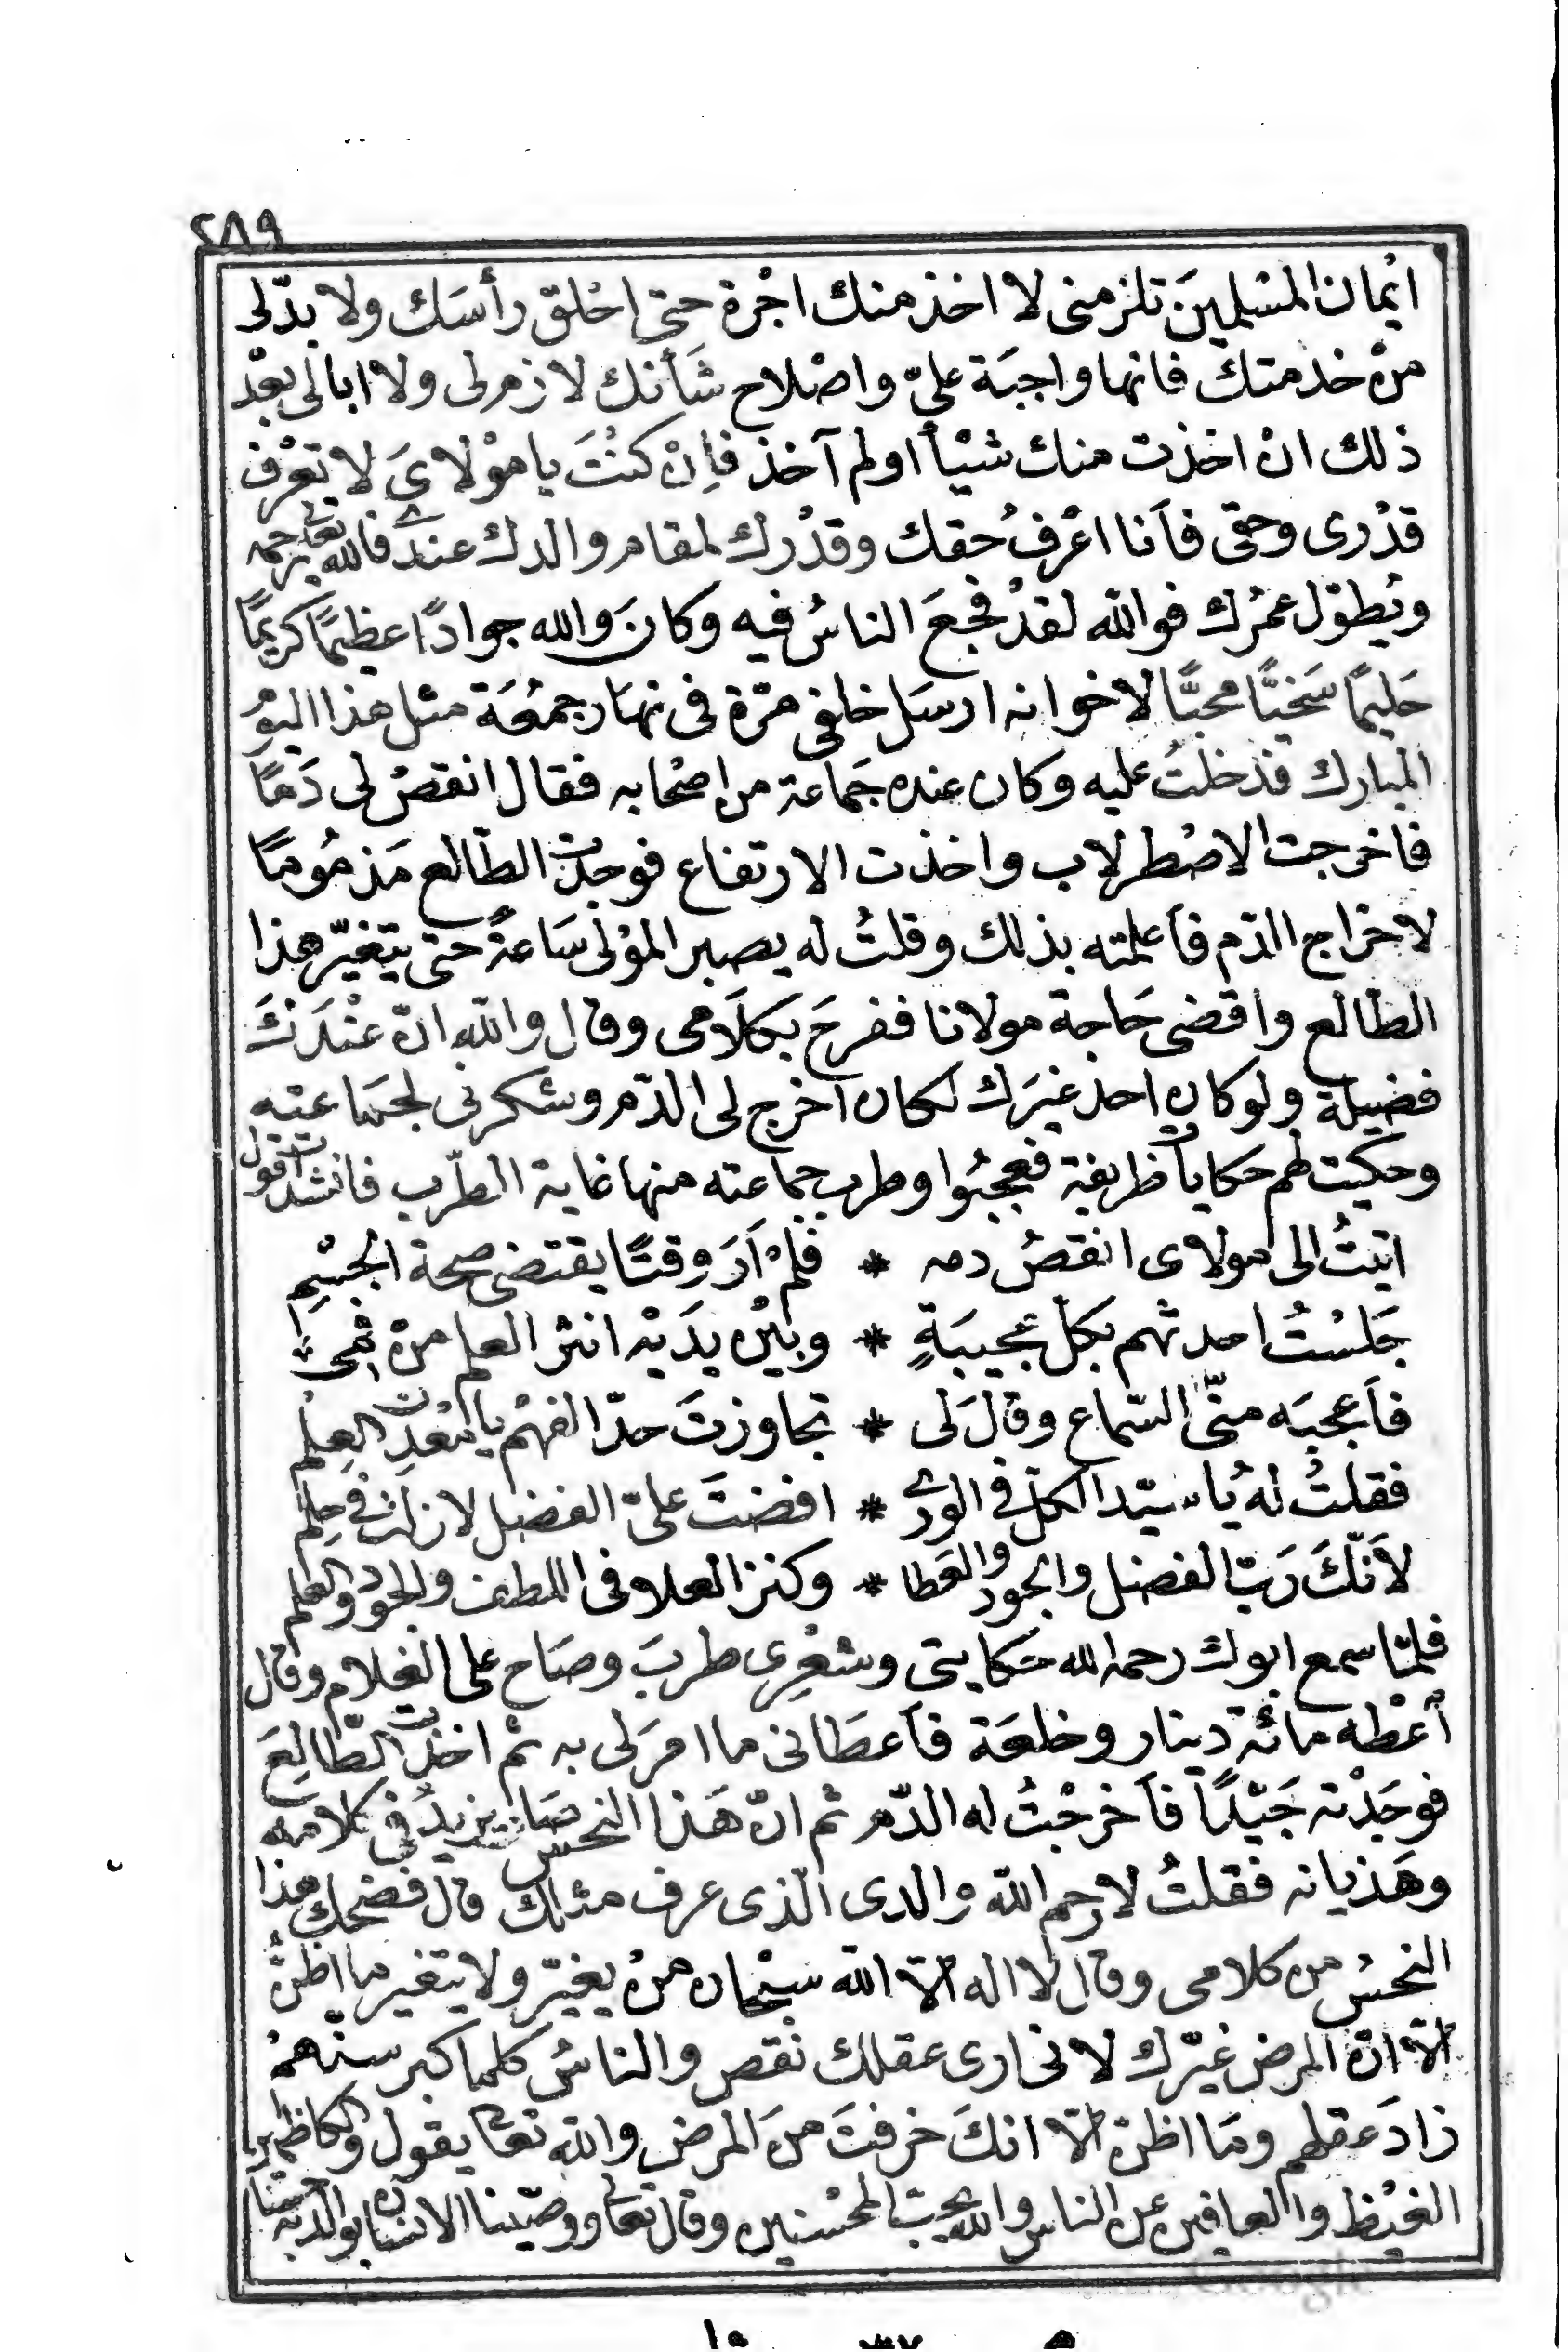 ٢٨٩
ايْمان المسْلمِينَ تلزمنى لا اخذ منك اجْرة حتى احْلق رأسَك ولا بدّلى
منْ خذمتك فانها واجبَة علىّ واصْلاح شَأنك لازم لى ولا ابالى بعْد
ذلك انْ اخذت منك شيْأ او لم آخذ فاِنْ كنْتَ يا موْلاىَ لا تعْرف
قدْرى وحقى فاَنا اعْرفُ حقك وقدْرك لمقام والدك عندى فالله تعا يرحمه
ويُطوّل عمْرك فوالله لقدْ فجعَ الناسُ فيه وكانَ والله جوادًا عظيمًا كريمًا
حَليمًا سَخيًّا محبًّا لاخوانه ارسَل خلفى مرّة فى نهَار جمعَة مثل هذا اليوْم
المبارك فدخلتُ عليه وكان عنده جَماعة من اصْحابه فقال انقصْ لى دَمًا
فاخرجت الاصْطرلاب واخذت الارتفاع فوجدْت الطّالع مَذمُومًا
لاخراج الدّم فاَعلمته بذلك وقلتُ له يصبر الموْلى سَاعةً حتى يتغيّر هذا
الطّالع واقضى حَاجة مولانا ففرحَ بكلَامى وقال والله انّ عنْدَكَ
فضيلة ولوكان احد غيرَك لكان اخرج لى الدّم وشكرنى لجمَاعته
وحكيت لهم حكايا ظريفة فعجبُوا وطرب جماعته منها غاية الطّرب فانشدت اقول
اتيتُ الى مولاى انقصُ دمه * فلمْ اَرَ وقتًا يقتضى صحة الجسْمِ
جَلسْتُ احدثهم بكلّ عجيبَةٍ * وبيْن يدَيْه انثر العلم منْ فهمى
فاَعجبَه منّى السّماع وقالَ لى * تجاوزتَ حدّ الفهْم يا معْدن العِلْم
فقلتُ لهُ يا سيّد الكلّ فى الورى * افضتَ علىّ الفضل لا زلت فى حِلْم
لاَنّكَ رَبّ الفضل والجود والعَطا * وكنز العلا فى اللطف والجود والحلم
فلمّا سمع ابوك رحمه الله حكايتى وشعْرى طربَ وصَاح على الغلام وقال
أعْطه مائة دينار وخلعَة فاَعطَانى ما امرَ لى به ثم اخذت الطّالعَ
فوجَدْته جَيّدًا فاَخرجْتُ له الدّم ثم انّ هَذا النحس صَار يزيدُ فى كلامه
وهَذيانه فقلتُ لا رحم الله والدى الّذى عرف مثلك قال فضحك هذا
النحسُ من كلامى وقال لا اله الاّ الله سبْحان منْ يغيّر ولا يتغير ما اظنّ
الاّ انّ المرض غيّرك لانى ارى عقلك نقص والناسُ كلما كبر سنّهمْ
زادَ عقلهم ومَا اظنّ الاّ انكَ خرفتَ منَ المرض والله تعا يقول والكاظمين
الغيْظ والعافين عن الناس والله يحبّ المحْسنين وقال تعا ووصّينا الانسان بوالديْه حسْنا